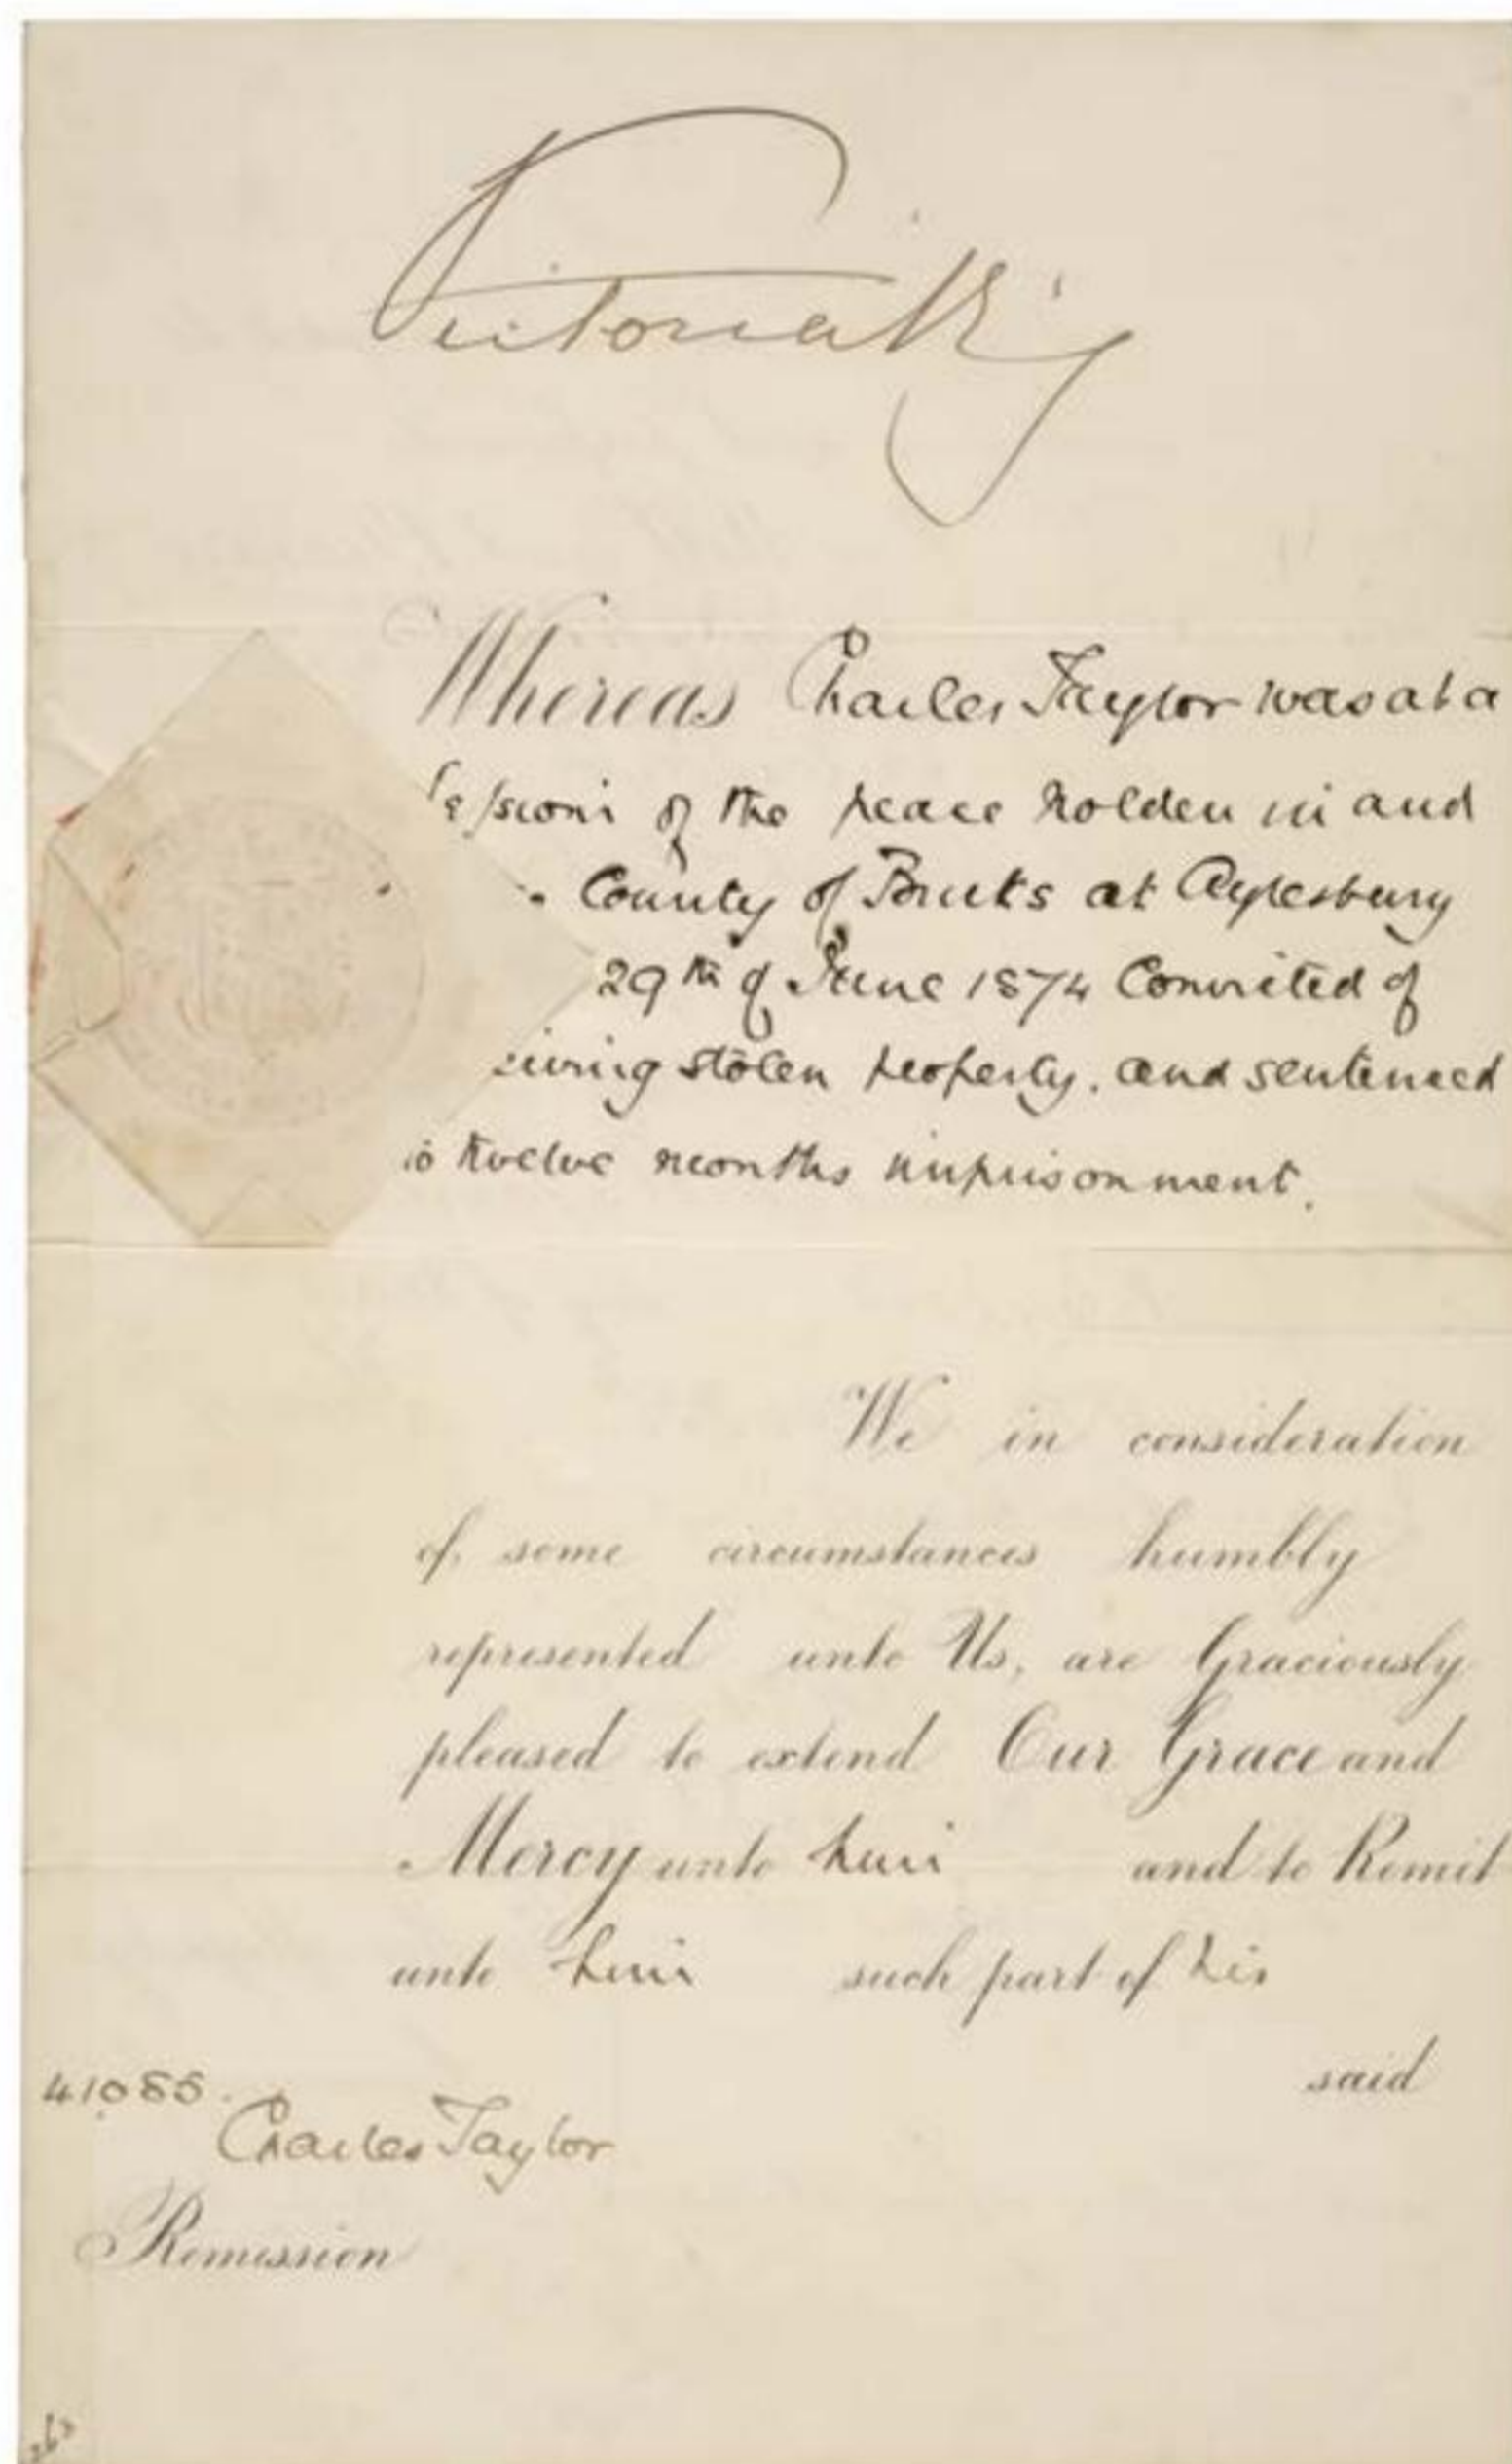 Victoria R
Whereas Charles Taylor was at a
Session of the peace holden in and
County of Bucks at Aylesbury
29th of June 1874 Convicted of
eiving stolen property. and sentenced
to twelve months imprisonment.
We in consideration
of some circumstances humbly
represented unto Us, are Graciously
pleased to extend Our Grace and
Mercy unto him and to Remit
unto him such part of his
said
41085.
Charles Taylor
Remission